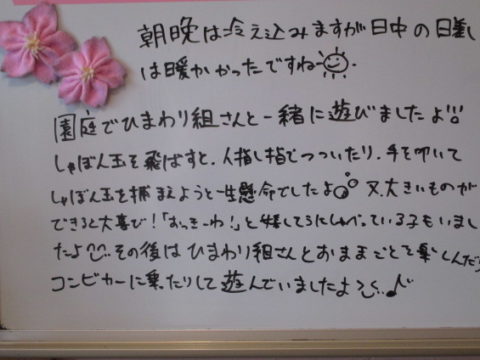 朝晩は冷え込みますが日中の日差し
は暖かかったですね
園庭でひまわり組さんと一緒に遊びましたよ!!!
しゃぼん玉を飛ばすと、人指し指でつついたり、手を叩いて
しゃぼん玉を捕まえようと一生懸命でしたよ 又、大きいものが
できると大喜び!「おっきーわ!」と嬉しそうにしゃべっている子もいまし
たよ その後はひまわり組さんとおままごとを楽しんだり
コンビカーに乗たりして遊んでいましたよ